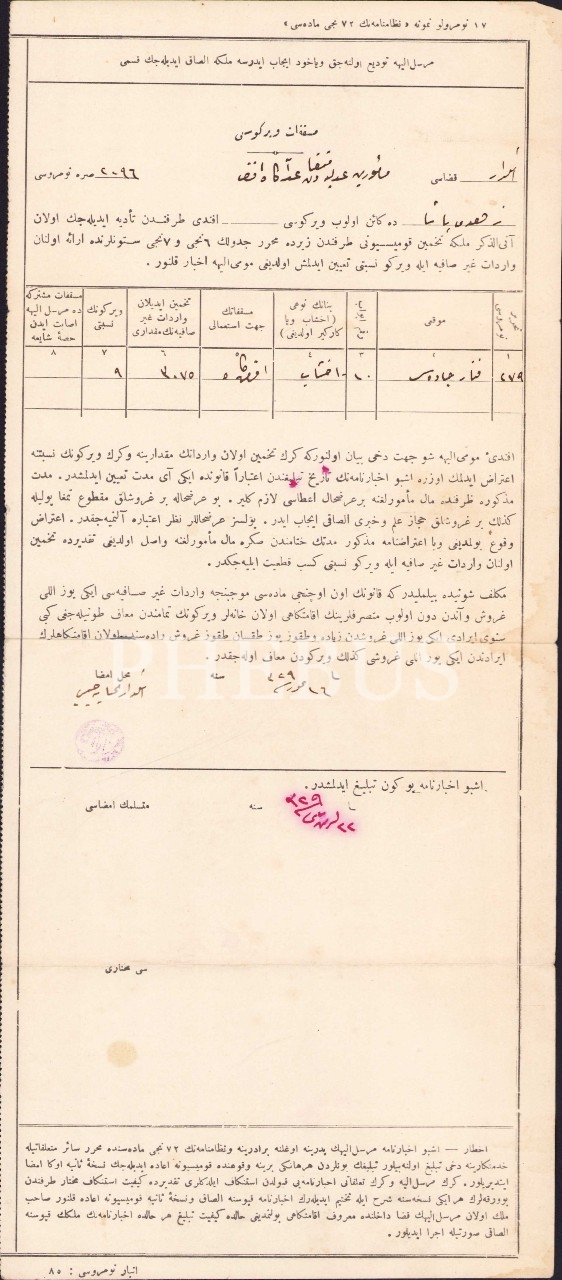 ١٧ نومرولو نمونه « نظامنامه‌نك ٧٢ نجی ماده‌سی »
مرسل الیهه تودیع اولنه‌جق ویاخود ایجاب ایدرسه ملكه الصاق ایدیله‌جك قسمی
مسقفات ویركوسی
قضاسی
٢٠٩٦ صره نومروسی
ده كائن اولوب ویركوسی افندی طرفندن تأدیه ایدیله‌جك اولان
آتی‌الذكر ملكه تخمین قومیسیونی طرفندن زیرده محرر جدولك ٦ نجی و ٧ نجی ستونلرنده ارائه اولنان
واردات غیر صافیه ایله ویركو نسبتی تعیین ایدلمش اولدیغی مومی‌الیهه اخبار قلنور .
تحریر نومروسی
موقعی
ابواب
بنانك نوعی (اخشاب ویا كارگیر اولدیغی)
مسقفاتك جهت استعمالی
تخمین ایدیلان واردات غیر صافیه‌نك مقداری
ویركونك نسبتی
مسقفات مشتركه‌ده مرسل الیهه اصابت ایدن حصهٔ شایعه
١ ٢ ٣ ٤ ٥ ٦ ٧ ٨
٢٧٩ فنار جاده‌سی ١٠ اخشاب ٣٠٧٥ ٩
افندیٔ مومی‌الیهه شو جهت دخی بیان اولنوركه كرك تخمین اولان وارداتك مقدارینه وكرك ویركونك نسبتنه
اعتراض ایدلمك اوزره اشبو اخبارنامه‌نك تاریخ تبلیغندن اعتباراً قانونده ایكی آی مدت تعیین ایدلمشدر . مدت
مذكوره ظرفنده مال مأمورلغنه برعرضحال اعطاسی لازم كلیر . بو عرضحاله بر غروشلق مقطوع تمغا پولیله
كذلك بر غروشلق حجاز علم وخبری الصاقی ایجاب ایدر . پولسز عرضحاللر نظر اعتباره آلنمیه‌جقدر . اعتراض
وقوع بولمدیغی ویا اعتراضنامه مذكور مدتك ختامندن صكره مال مأمورلغنه واصل اولدیغی تقدیرده تخمین
اولنان واردات غیر صافیه ایله ویركو نسبتی كسب قطعیت ایلیه‌جكدر .
مكلف شونیده بیلملیدر كه قانونك اون اوچنجی ماده‌سی موجبنجه واردات غیر صافیه‌سی ایكی یوز اللی
غروش وآندن دون اولوب متصرفلرینك اقامتكاهی اولان خانه‌لر ویركونك تمامندن معاف طوتیله‌جغی كبی
سنوی ایرادی ایكی یوز اللی غروشدن زیاده وطقوز یوز طقسان طقوز غروش راده‌سنده اولان اقامتكاهلرك
ایرادندن ایكی یوز اللی غروشی كذلك ویركودن معاف اوله‌جقدر .
PHEBUS
محل امضا
سنه
اشبو اخبارنامه بو كون تبلیغ ایدلمشدر .
سنه
متسلمك امضاسی
سی مختاری
اخطار — اشبو اخبارنامه مرسل الیهك پدرینه اوغلنه برادرینه ونظامنامه‌نك ٧٢ نجی ماده‌سنده محرر سائر متعلقاتیله
خدمتكارینه دخی تبلیغ اولنه‌بیلور تبلیغك بونلردن هرهانكی برینه وقوعنده قومیسیونه اعاده ایدیله‌جك نسخهٔ ثانیه اوكا امضا
ایتدیریلور . كرك مرسل الیه وكرك تعلقاتی اخبارنامه‌یی قبولدن استنكاف ایلدكلری تقدیرده كیفیت استنكاف مختار طرفندن
بوورقه‌لرك هرایكی نسخه‌سنه شرح ایله تختیم ایدیله‌رك اخبارنامه قپوسنه الصاق ونسخهٔ ثانیه قومیسیونه اعاده قلنور صاحب
ملك اولان مرسل الیهك قضا داخلنده معروف اقامتكاهی بولنمدیغی حالده كیفیت تبلیغ هر حالده اخبارنامه‌نك ملكك قپوسنه
الصاقی صورتیله اجرا ایدیلور .
انبار نومروسی : ٨٥